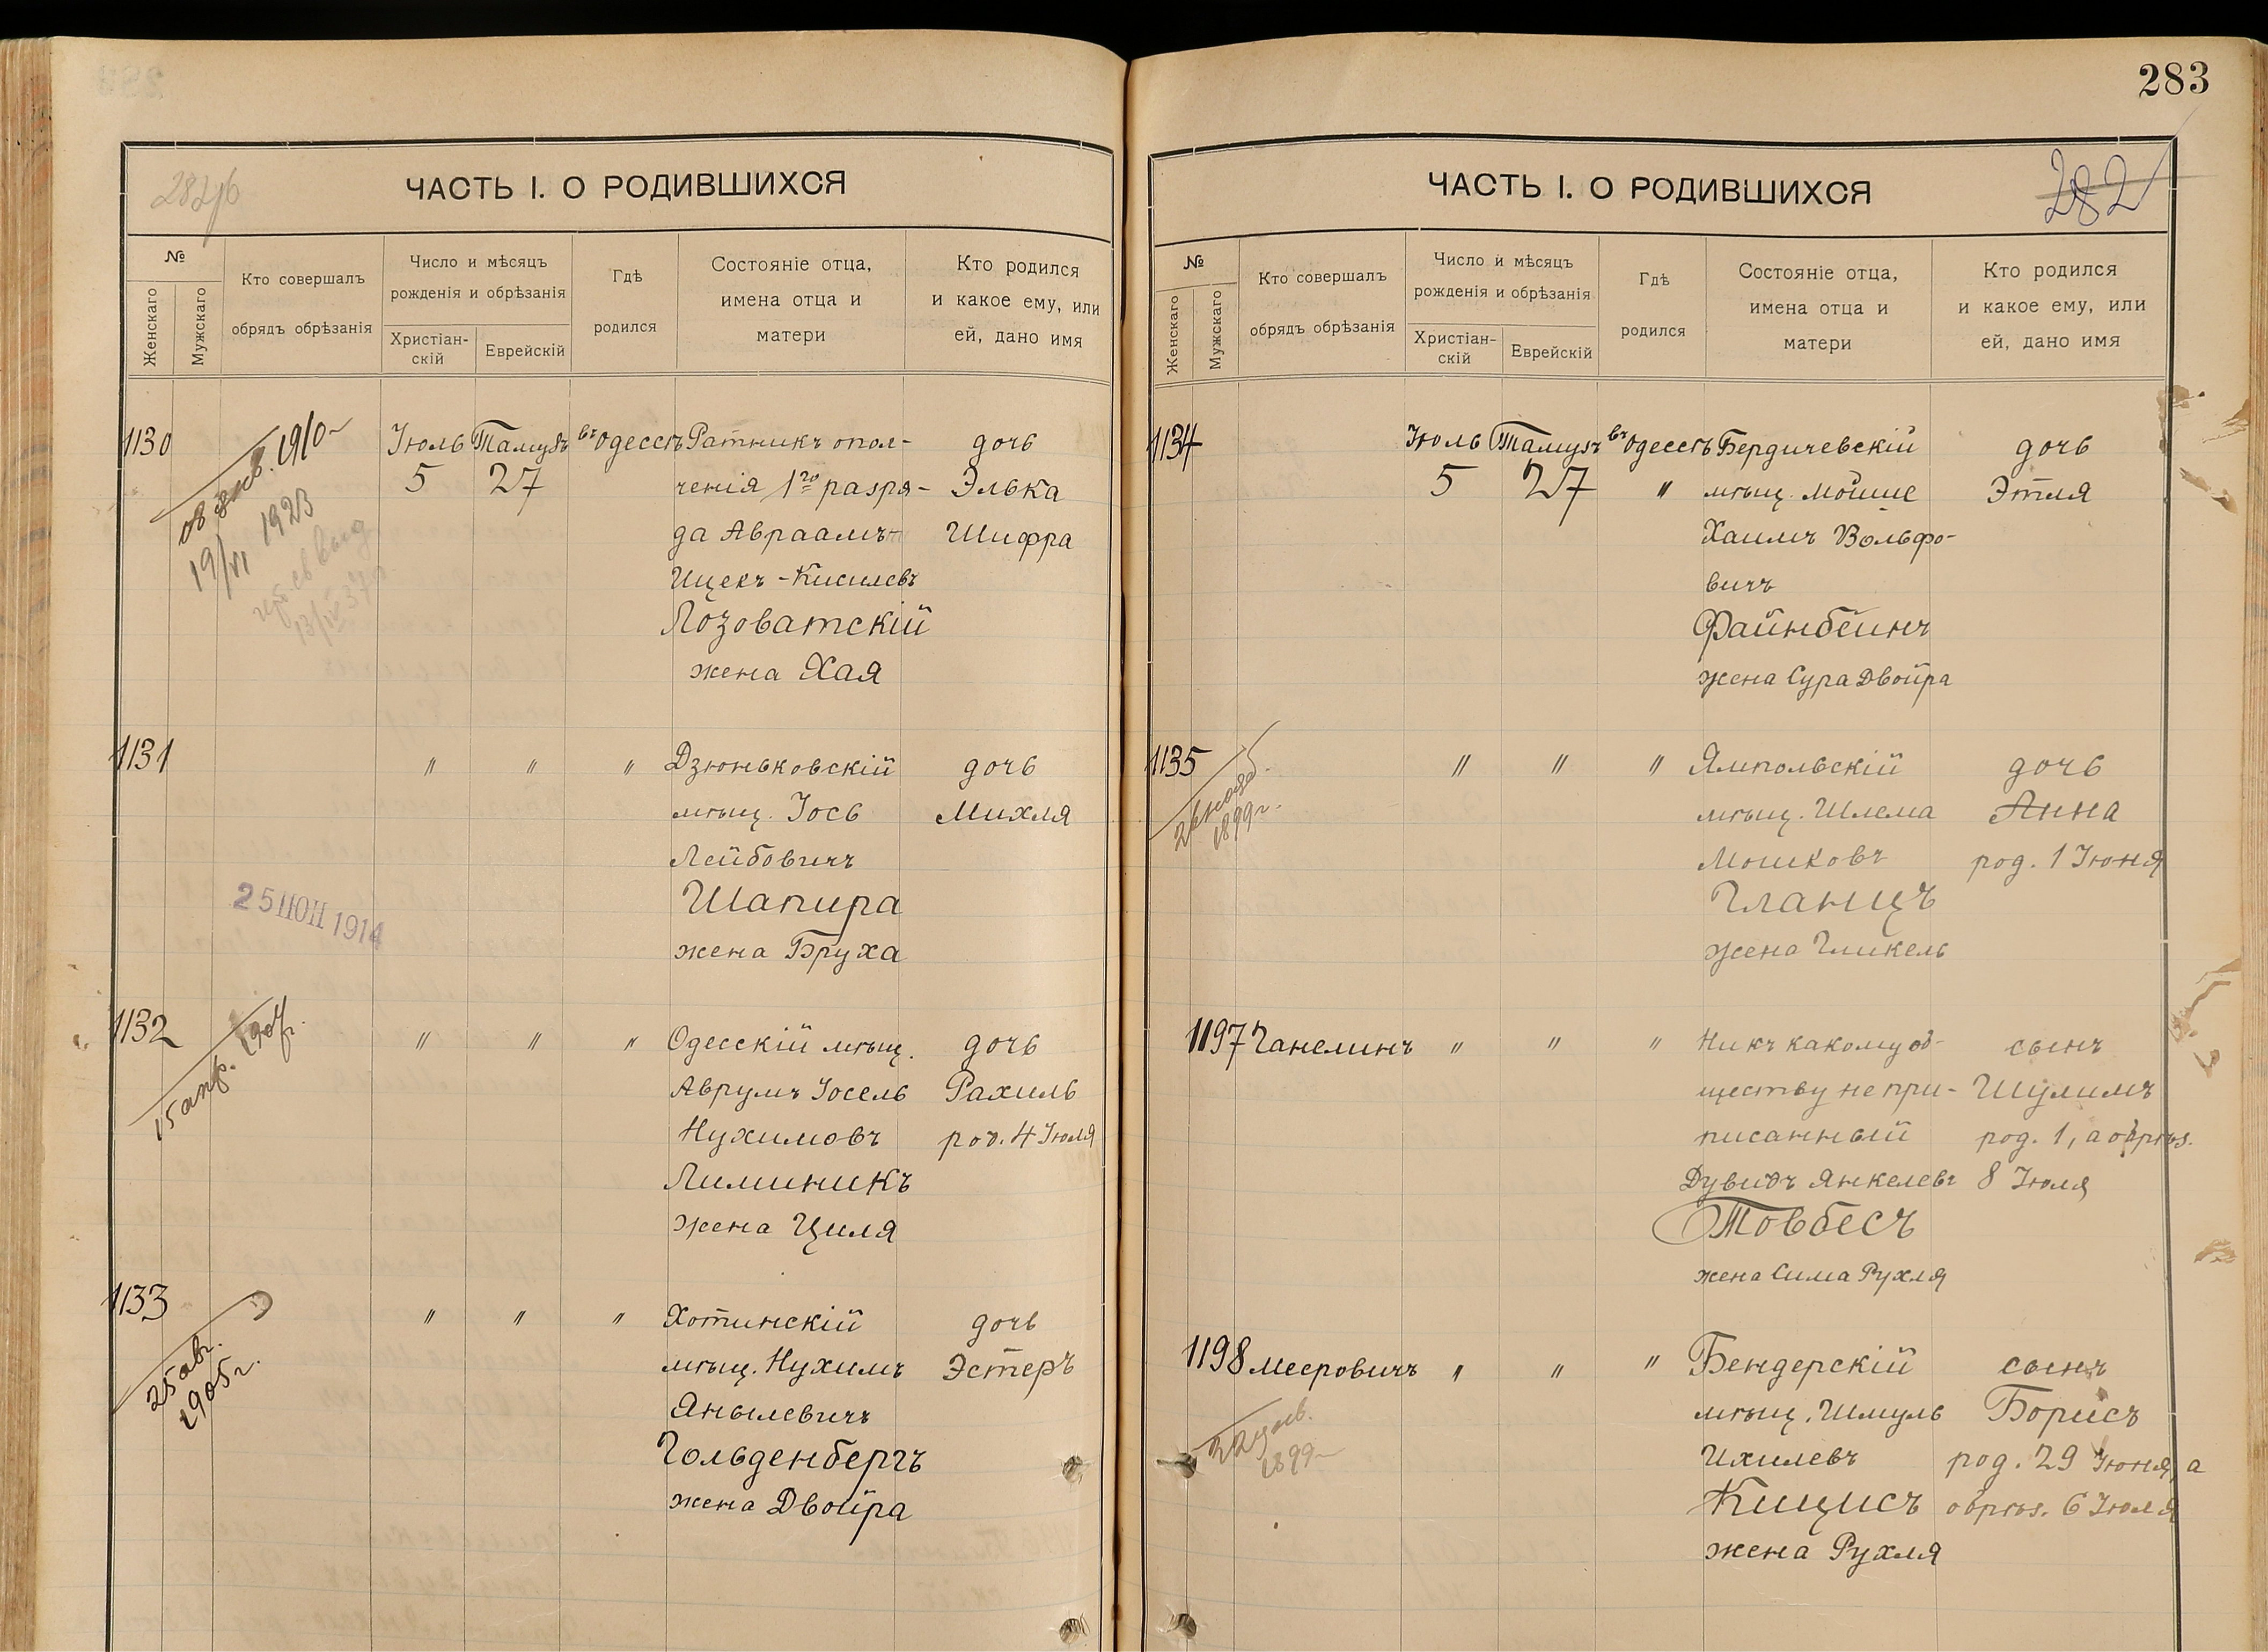 283
ЧАСТЬ I. О РОДИВШИХСЯ
№
Женскаго
Мужскаго
Кто совершалъ
обрядъ обрѣзанія
Число и мѣсяцъ
рожденія и обрѣзанія
Христіан-
скій
Еврейскій
Гдѣ
родился
Состояніе отца,
имена отца и
матери
Кто родился
и какое ему, или
ей, дано имя
1130 Іюль Тамузъ въ Одессѣ Ратникъ опол- дочь
5 27 ченія 1го разря- Элька
да Авраамъ Шифра
Ицекъ-Кисилевъ
Лозоватскій
жена Хая
1910
19/VI 1923
1131 " " " Дзюньковскій дочь
мѣщ. Іось Михля
Лейбовичъ
Шапира
жена Бруха
25 ІЮП 1914
1132 " " " Одесскій мѣщ. дочь
Аврумъ Іосель Рахиль
Нухимовъ род. 4 Іюля
Лиминикъ
жена Циля
15 апр. 1904г.
1133 " " " Хотинскій дочь
мѣщ. Нухимъ Эстеръ
Янылевичъ
Гольденбергъ
жена Двойра
25 авг.
1905г.
ЧАСТЬ I. О РОДИВШИХСЯ
282
№
Женскаго
Мужскаго
Кто совершалъ
обрядъ обрѣзанія
Число и мѣсяцъ
рожденія и обрѣзанія
Христіан-
скій
Еврейскій
Гдѣ
родился
Состояніе отца,
имена отца и
матери
Кто родился
и какое ему, или
ей, дано имя
1134 Іюль Тамузъ въ Одессѣ Бердичевскій дочь
5 27 " мѣщ. Мойше Этля
Хаимъ Вольфо-
вичъ
Файнбейнъ
жена Сура Двойра
1135 " " " Ямпольскій дочь
мѣщ. Шлема Анна
Мошковъ род. 1 Іюня
Гланцъ
жена Гликель
1899г.
1197 Ганелинъ " " " Ни къ какому об- сынъ
ществу не при- Шулимъ
писанный род. 1, а обрѣз.
Дувидъ Янкелевъ 8 Іюля
Товбесъ
жена Сима Рухля
1198 Мееровичъ " " " Бендерскій сынъ
мѣщ. Шмуль Борисъ
Ихилевъ род. 29 Іюня, а
Кицисъ обрѣз. 6 Іюля
жена Рухля
1899